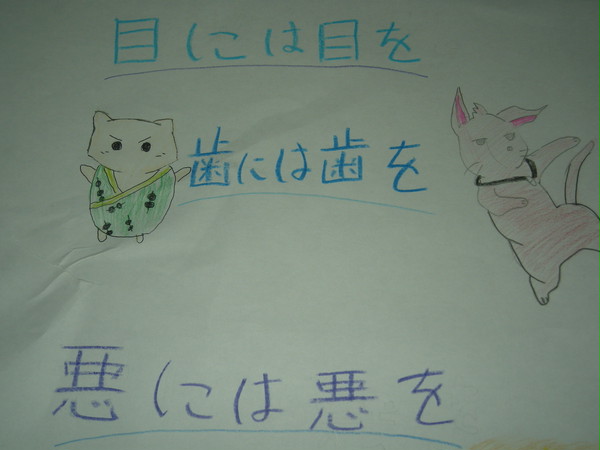 目には目を
歯には歯を
悪には悪を